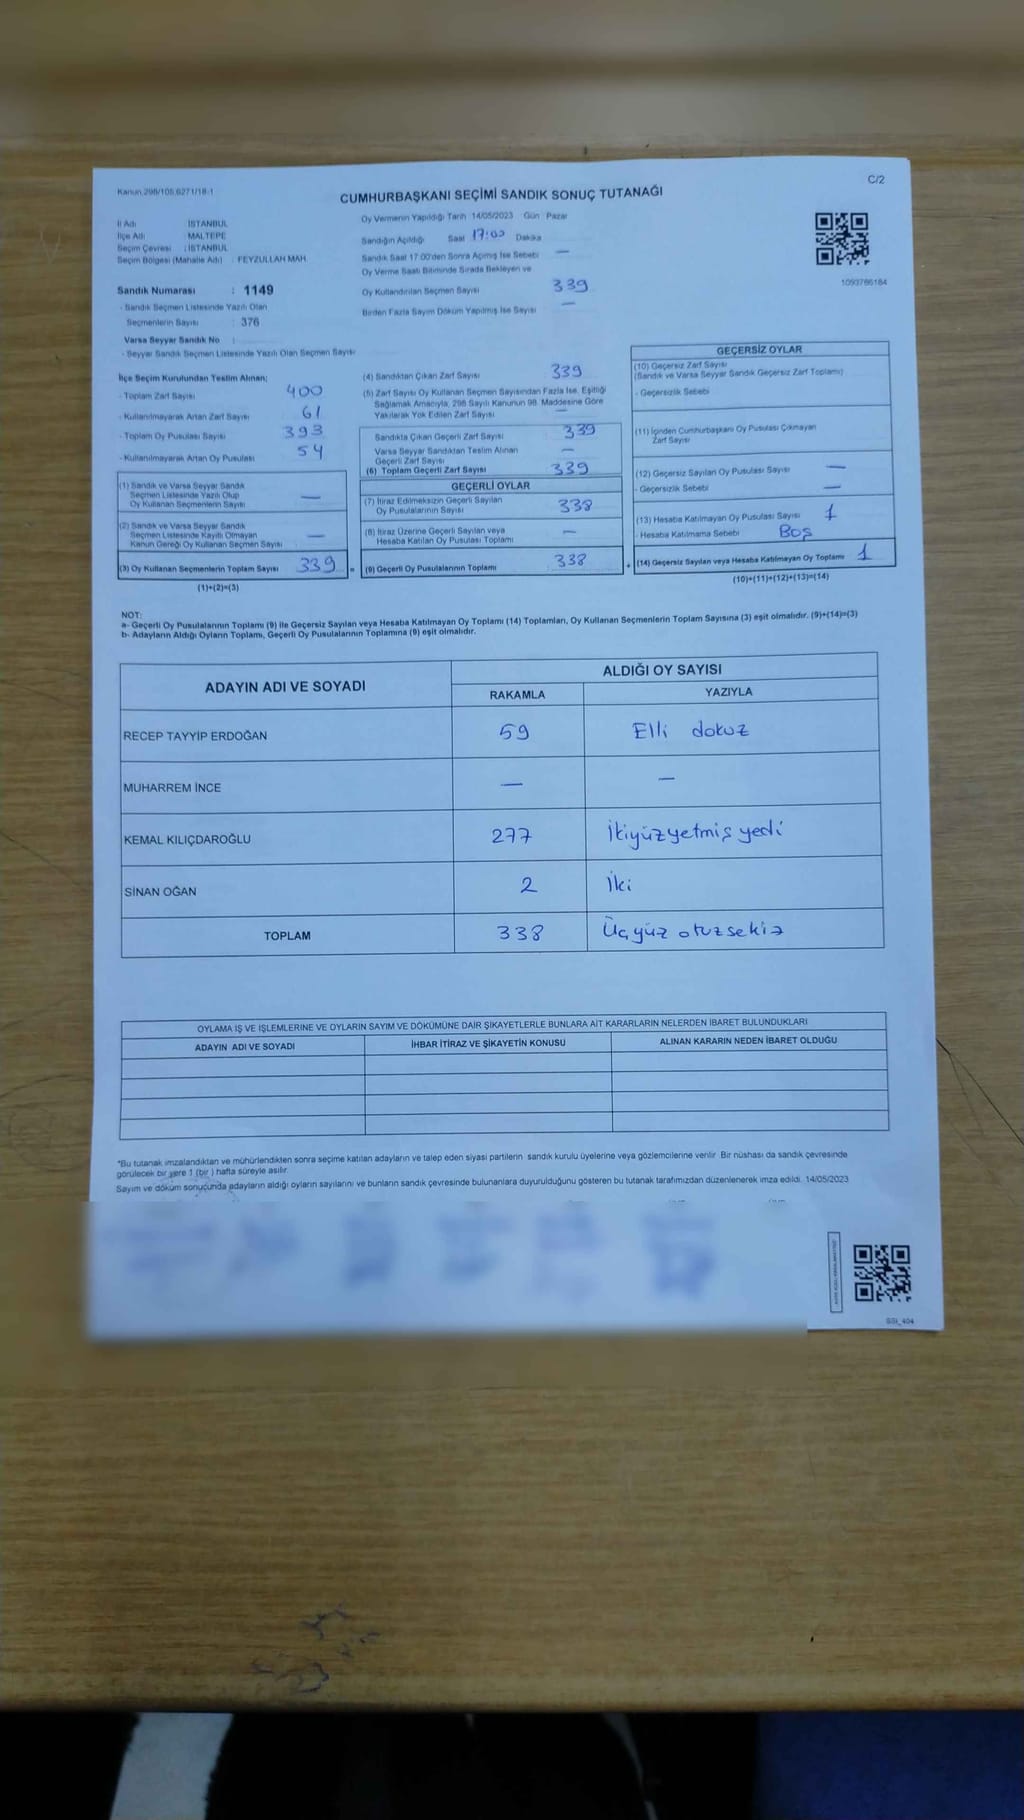 Kanun 298/105,6271/18-1
C/2
CUMHURBAŞKANI SEÇİMİ SANDIK SONUÇ TUTANAĞI
İl Adı : İSTANBUL
İlçe Adı : MALTEPE
Seçim Çevresi : İSTANBUL
Seçim Bölgesi (Mahalle Adı) : FEYZULLAH MAH.
Sandık Numarası : 1149
- Sandık Seçmen Listesinde Yazılı Olan
Seçmenlerin Sayısı : 376
Varsa Seyyar Sandık No :
- Seyyar Sandık Seçmen Listesinde Yazılı Olan Seçmen Sayısı
Oy Vermenin Yapıldığı Tarih 14/05/2023 Gün Pazar
Sandığın Açıldığı Saat 17:00 Dakika
Sandık Saat 17.00'den Sonra Açımış İse Sebebi —
Oy Verme Saati Bitiminde Sırada Bekleyen ve
Oy Kullandırılan Seçmen Sayısı 339
Birden Fazla Sayım Döküm Yapılmış İse Sayısı —
1093786184
İlçe Seçim Kurulundan Teslim Alınan;
- Toplam Zarf Sayısı 400
- Kullanılmayarak Artan Zarf Sayısı 61
- Toplam Oy Pusulası Sayısı 393
- Kullanılmayarak Artan Oy Pusulası 54
(1) Sandık ve Varsa Seyyar Sandık
Seçmen Listesinde Yazılı Olup
Oy Kullanan Seçmenlerin Sayısı —
(2) Sandık ve Varsa Seyyar Sandık
Seçmen Listesinde Kayıtlı Olmayan
Kanun Gereği Oy Kullanan Seçmen Sayısı —
(3) Oy Kullanan Seçmenlerin Toplam Sayısı 339 =
(1)+(2)=(3)
(4) Sandıktan Çıkan Zarf Sayısı 339
(5) Zarf Sayısı Oy Kullanan Seçmen Sayısından Fazla İse, Eşitliği
Sağlamak Amacıyla, 298 Sayılı Kanunun 98. Maddesine Göre
Yakılarak Yok Edilen Zarf Sayısı —
Sandıkta Çıkan Geçerli Zarf Sayısı 339
Varsa Seyyar Sandıktan Teslim Alınan
Geçerli Zarf Sayısı —
(6) Toplam Geçerli Zarf Sayısı 339
GEÇERLİ OYLAR
(7) İtiraz Edilmeksizin Geçerli Sayılan
Oy Pusulalarının Sayısı 338
(8) İtiraz Üzerine Geçerli Sayılan veya
Hesaba Katılan Oy Pusulası Toplamı —
(9) Geçerli Oy Pusulalarının Toplamı 338 +
GEÇERSİZ OYLAR
(10) Geçersiz Zarf Sayısı
(Sandık ve Varsa Seyyar Sandık Geçersiz Zarf Toplamı)
- Geçersizlik Sebebi
(11) İçinden Cumhurbaşkanı Oy Pusulası Çıkmayan
Zarf Sayısı
(12) Geçersiz Sayılan Oy Pusulası Sayısı —
- Geçersizlik Sebebi —
(13) Hesaba Katılmayan Oy Pusulası Sayısı 1
- Hesaba Katılmama Sebebi Boş
(14) Geçersiz Sayılan veya Hesaba Katılmayan Oy Toplamı 1
(10)+(11)+(12)+(13)=(14)
NOT:
a- Geçerli Oy Pusulalarının Toplamı (9) ile Geçersiz Sayılan veya Hesaba Katılmayan Oy Toplamı (14) Toplamları, Oy Kullanan Seçmenlerin Toplam Sayısına (3) eşit olmalıdır. (9)+(14)=(3)
b- Adayların Aldığı Oyların Toplamı, Geçerli Oy Pusulalarının Toplamına (9) eşit olmalıdır.
ADAYIN ADI VE SOYADI
ALDIĞI OY SAYISI
RAKAMLA YAZIYLA
RECEP TAYYİP ERDOĞAN 59 Elli dokuz
MUHARREM İNCE — —
KEMAL KILIÇDAROĞLU 277 İkiyüzyetmiş yedi
SİNAN OĞAN 2 İki
TOPLAM 338 Üçyüz otuzsekiz
OYLAMA İŞ VE İŞLEMLERİNE VE OYLARIN SAYIM VE DÖKÜMÜNE DAİR ŞİKAYETLERLE BUNLARA AİT KARARLARIN NELERDEN İBARET BULUNDUKLARI
ADAYIN ADI VE SOYADI İHBAR İTİRAZ VE ŞİKAYETİN KONUSU ALINAN KARARIN NEDEN İBARET OLDUĞU
*Bu tutanak imzalandıktan ve mühürlendikten sonra seçime katılan adayların ve talep eden siyasi partilerin sandık kurulu üyelerine veya gözlemcilerine verilir. Bir nüshası da sandık çevresinde
görülecek bir yere 1 (bir ) hafta süreyle asılır.
Sayım ve döküm sonucunda adayların aldığı oyların sayılarını ve bunların sandık çevresinde bulunanlara duyurulduğunu gösteren bu tutanak tarafımızdan düzenlenerek imza edildi. 14/05/2023
SSI_404